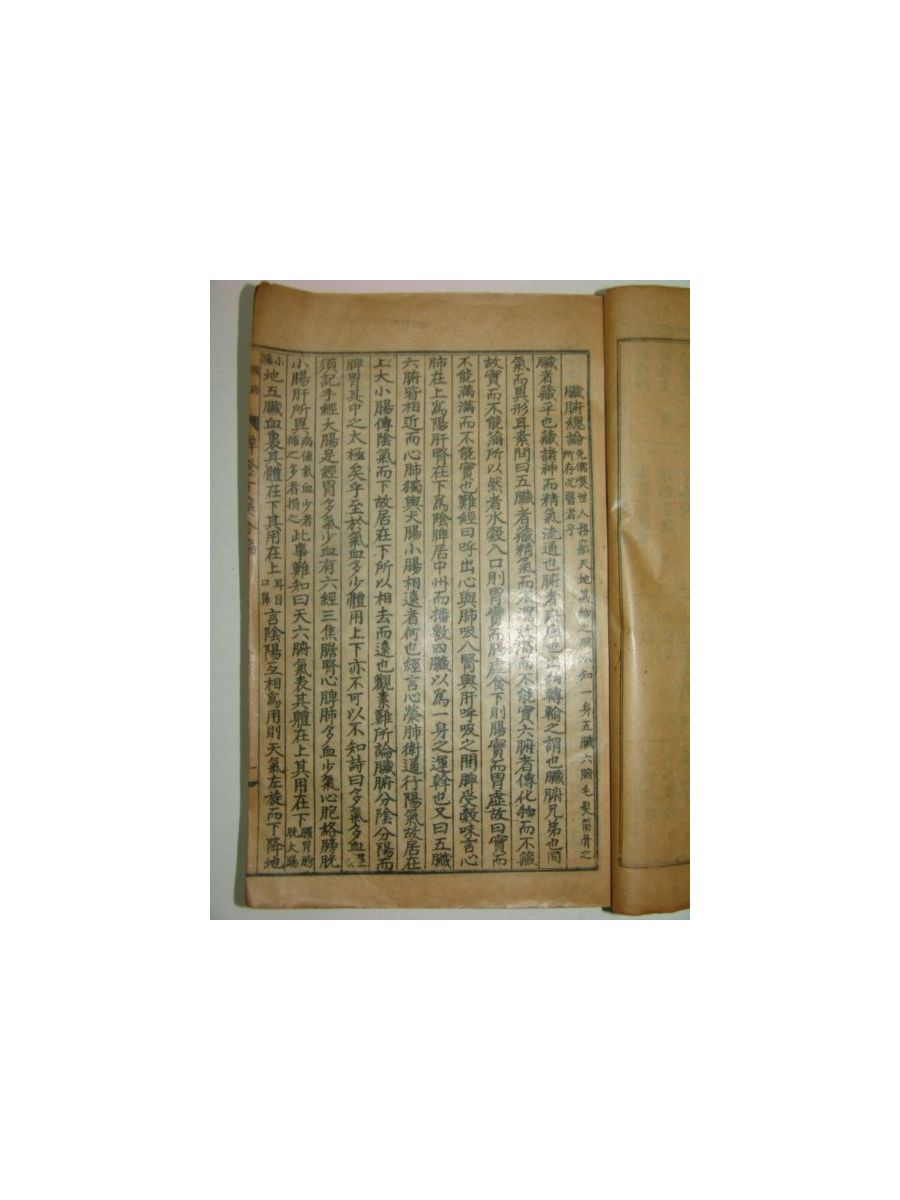 臟腑總論 先儒嘆世人務窮天地萬物之理不知一身五臟六腑毛髮筋骨之所存況醫者乎
臟者藏乎也藏諸神而精氣流通也腑者府庫也出納轉輸之謂也臟腑兄弟也同
氣而異形耳素問曰五臟者藏精氣而不瀉故滿而不能實六腑者傳化物而不藏
故實而不能滿所以然者水穀入口則胃實而腸虛食下則腸實而胃虛故曰實而
不能滿滿而不能實也難經曰呼出心與肺吸入腎與肝呼吸之間脾受穀味言心
肺在上爲陽肝腎在下爲陰脾居中州而播敷四臟以爲一身之運幹也又曰五臟
六腑皆相近而心肺獨與大腸小腸相遠者何也經言心榮肺衛通行陽氣故居在
上大小腸傳陰氣而下故居在下所以相去而遠也觀素難所論臟腑分陰分陽而
脾胃其中之太極矣乎至於氣血多少體用上下亦不可以不知詩曰多氣多血
須記手經大腸足經胃多氣少血有六經三焦膽腎心脾肺多血少氣心胞絡膀胱
小腸肝所異 病値氣血少者補之多者損之 此事難知曰天六腑氣表其體在上其用在下 膽胃膀胱大腸
小腸 地五臟血裏其體在下其用在上 耳目口鼻 言陰陽互相爲用則天氣左旋而下降地